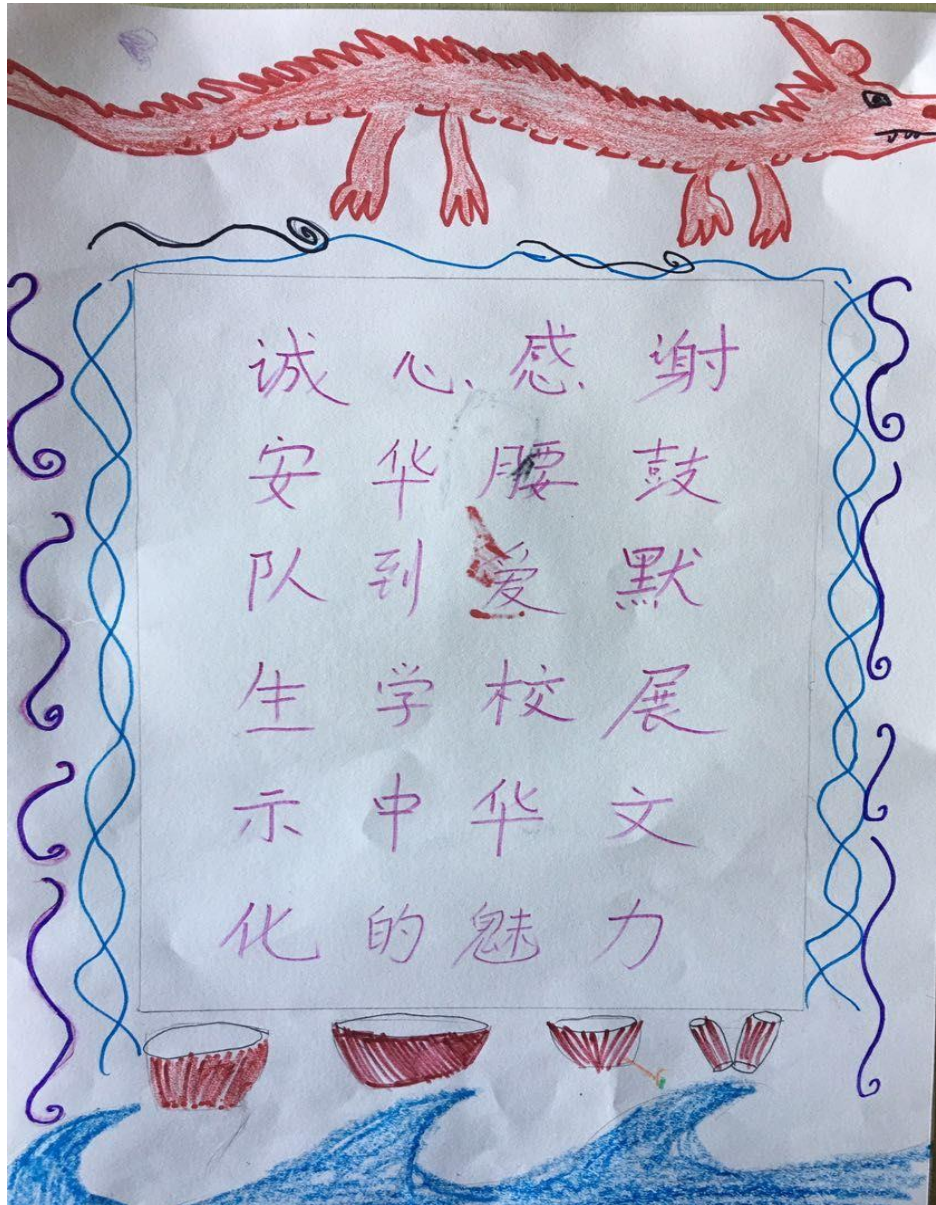 诚心感谢
安华腰鼓
队到爱默
生学校展
示中华文
化的魅力